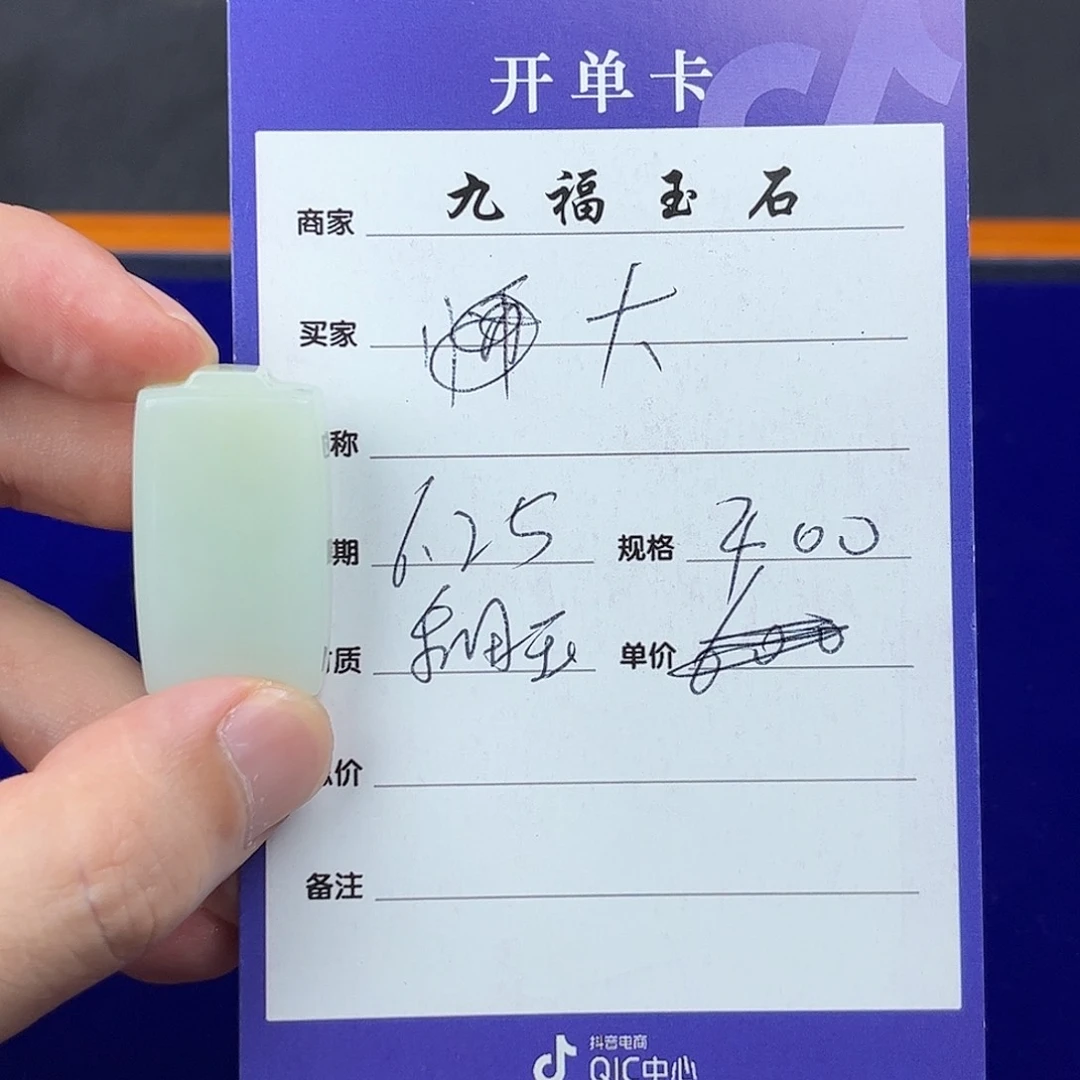 开单卡
商家 九福玉石
买家 大
称
期 6.25 规格 400
质 和田玉 单价 600
价
备注
抖音电商
QIC中心